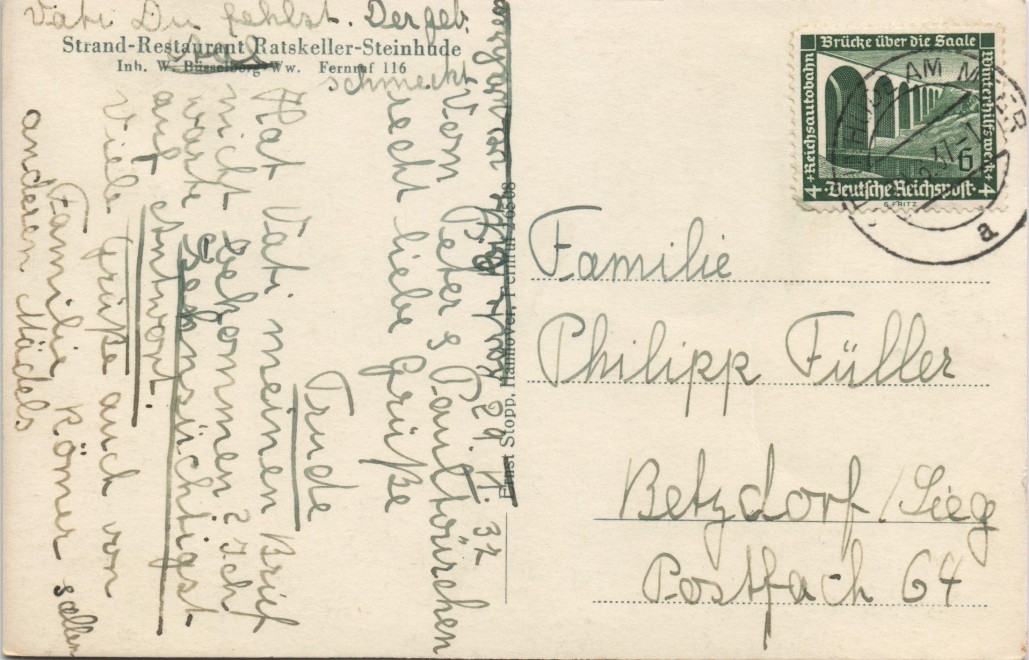 Vati Du fehlst. Der geb.
Aal
schmeckt
Strand-Restaurant Ratskeller-Steinhude
Inh. W. Büsselberg Ww. Fernruf 116
29. 7. 37
Vom Peter & Paultörchen
recht liebe Grüße
Trude
Hat Vati meinen Brief
nicht bekommen? Ich
warte sehnsüchtigst
auf Antwort.
Viele Grüße auch von
Familie Römer
anderen Mädels
Ernst Stopp, Hannover, Fernruf
Brücke über die Saale
Reichsautobahn
Winterhilfswerk
4 Deutsche Reichspost 4
6
G. FRITZ
AM MEER
a
Familie
Philipp Füller
Betzdorf/Sieg
Postfach 64